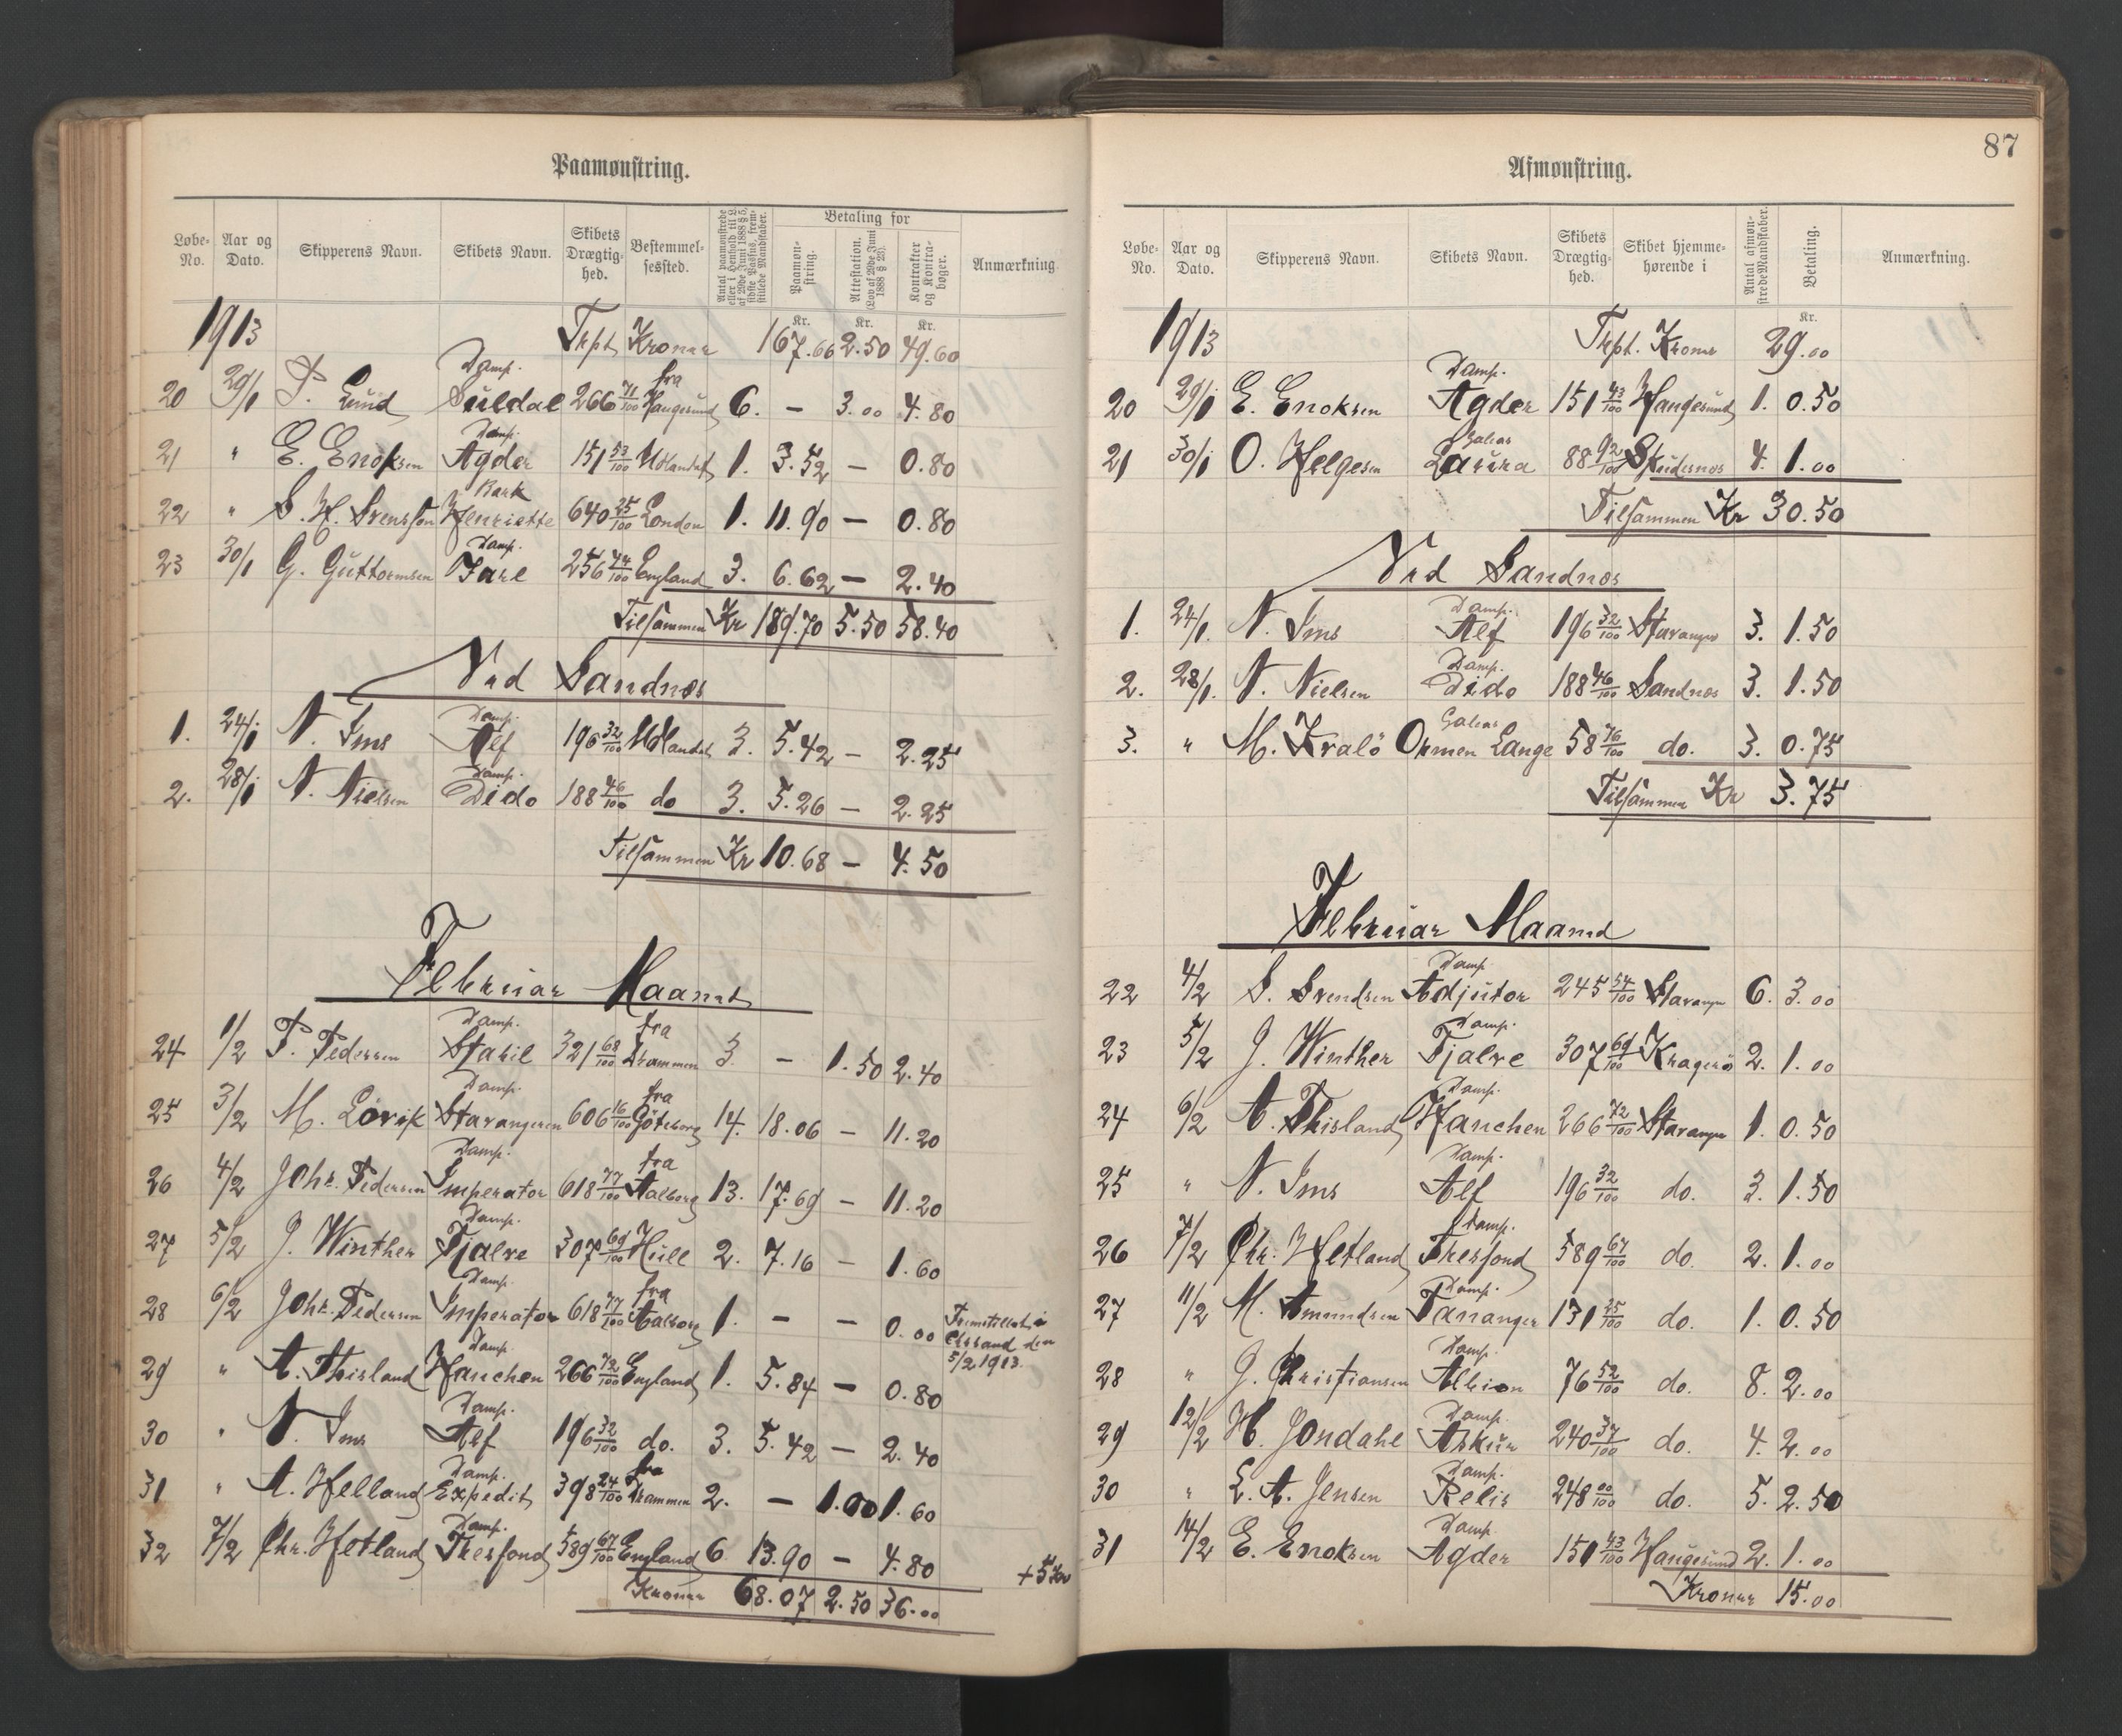 87
Paamønstring.
Løbe-No. Aar og Dato. Skipperens Navn. Skibets Navn. Skibets Drægtighed. Bestemmelsessted. Antal paamønstrede eller i Henhold til L. af 29de Juni 1888 § 5, sidste Passus, fremstillede Mandskaber. Betaling for Paamønstring. Attestation. (Lov af 29de Juni 1888 § 23). Kontrakter og Kontrabøger. Anmærkning.
Kr. Kr. Kr.
1913 Trpt Kroner 167.66 2.50 49.60
20 29/1 P. Lund Damp. Suldal 266 71/100 fra Haugesund 6. — 3.00 4.80
21 " E. Enoksen Damp. Agder 151 53/100 Udlandet 1. 3.52 — 0.80
22 " S. H. Svensson Bark Henriette 640 25/100 London 1. 11.90 — 0.80
23 30/1 G. Guttormsen Damp. Jarl 256 44/100 England 3. 6.62 — 2.40
Tilsammen Kr 189.70 5.50 58.40
Ved Sandnes
1. 24/1 N. Ims Damp. Alf 196 32/100 Udlandet 3. 5.42 — 2.25
2. 28/1 N. Nielsen Damp. Dido 188 46/100 do 3. 5.26 — 2.25
Tilsammen Kr 10.68 — 4.50
Februar Maaned
24 1/2 P. Pedersen Damp. Staril 321 68/100 fra Drammen 3. — 1.50 2.40
25 3/2 M. Lövik Damp. Stavangeren 606 16/100 fra Göteborg 14. 18.06 — 11.20
26 4/2 Johs. Pedersen Damp. Imperator 618 77/100 fra Aalborg 13. 17.69 — 11.20
27 5/2 J. Winther Damp. Tjalve 307 69/100 Hull 2. 7.16 — 1.60
28 6/2 Johs. Pedersen Damp. Imperator 618 77/100 fra Aalborg 1. — — 0.00 Fremstillet i den 5/2 1913.
29 " A. Thisland Damp. Hanchen 266 72/100 England 1. 5.84 — 0.80
30 " N. Ims Damp. Alf 196 32/100 do. 3. 5.42 — 2.40
31 " A. Helland Damp. Expedit 398 24/100 fra Drammen 2. — 1.00 1.60
32 7/2 Chr. Hetland Damp. Thesfond 589 67/100 England 6. 13.90 — 4.80
Kroner 68.07 2.50 36.00
Afmønstring.
Løbe-No. Aar og Dato. Skipperens Navn. Skibets Navn. Skibets Drægtighed. Skibet hjemmehørende i Antal afmønstrede Mandskaber. Betaling. Anmærkning.
Kr.
1913 Trpt. Kroner 29.00
20 29/1 E. Enoksen Damp. Agder 151 43/100 Haugesund 1. 0.50
21 30/1 O. Helgesen Galeas Laura 88 92/100 Skudesnes 4. 1.00
Tilsammen Kr 30.50
Ved Sandnes
1. 24/1. N. Ims Damp. Alf 196 32/100 Stavanger 3. 1.50
2. 28/1. N. Nielsen Damp. Dido 188 46/100 Sandnes 3. 1.50
3. " M. Kralö Galeas Ormen Lange 58 76/100 do. 3. 0.75
Tilsammen Kr 3.75
Februar Maaned
22 4/2 S. Svendsen Damp. Adjutor 245 54/100 Stavanger 6. 3.00
23 5/2 J. Winther Damp. Tjalve 307 69/100 Kragerö 2. 1.00
24 6/2 A. Thisland Damp. Hanchen 266 72/100 Stavanger 1. 0.50
25 " N. Ims Damp. Alf 196 32/100 do. 3. 1.50
26 7/2 Chr. Hetland Damp. Thesfond 589 67/100 do. 2. 1.00
27 11/2 M. Amundsen Damp. Tananger 131 25/100 do. 1. 0.50
28 " J. Christiansen Damp. Albion 76 52/100 do. 8. 2.00
29 12/2 H. Jondahl Damp. Askur 240 37/100 do. 4. 2.00
30 " L. A. Jensen Damp. Relis 248 00/100 do. 5. 2.50
31 14/2 E. Enoksen Damp. Agder 151 43/100 Haugesund 2. 1.00
Kroner 15.00